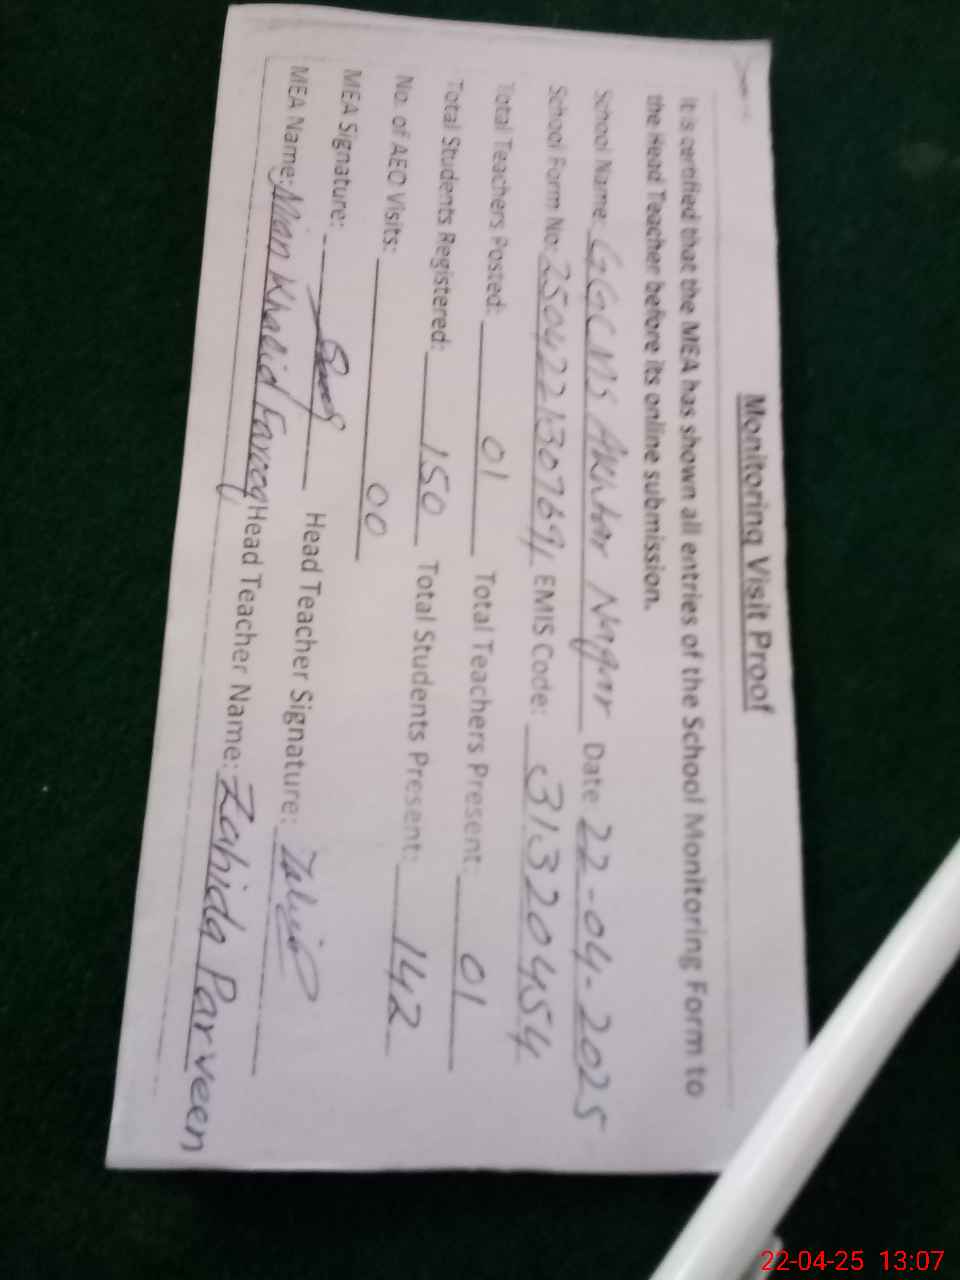 Monitoring Visit Proof
It is certified that the MEA has shown all entries of the School Monitoring Form to
the Head Teacher before its online submission.
School Name: GGCMS Akhtar Nagar Date 22-04-2025
School Form No: 2504221307694 EMIS Code: 31320454
Total Teachers Posted: 01 Total Teachers Present: 01
Total Students Registered: 150 Total Students Present: 142
No. of AEO Visits: 00
MEA Signature: Head Teacher Signature:
MEA Name: Mian Khalid Farooq Head Teacher Name: Zahida Parveen
22-04-25 13:07